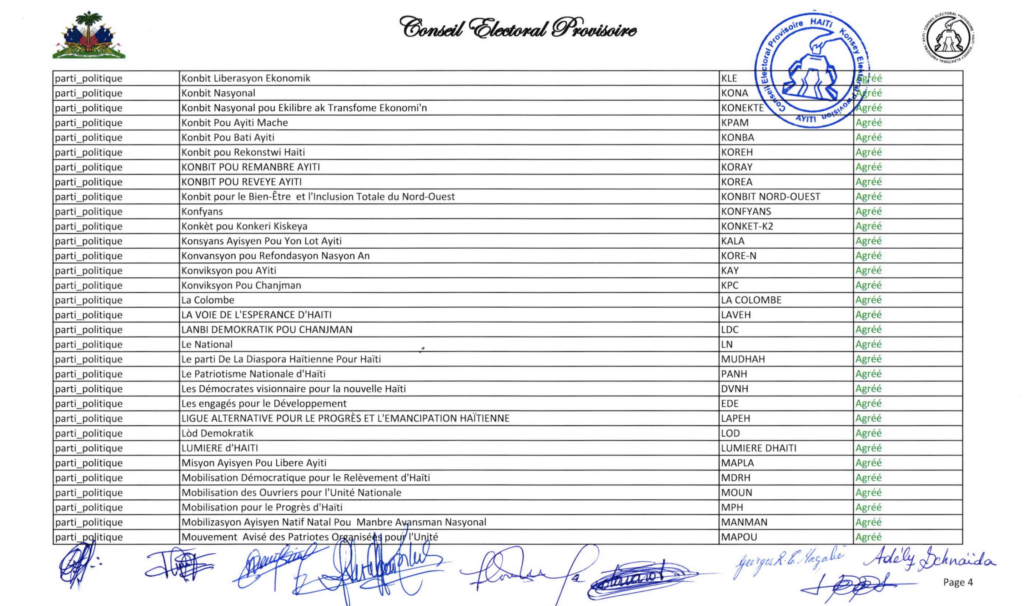 Conseil Electoral Provisoire
Conseil Electoral Provisoire HAITI Konsey Elektoral Pwovizwa AYITI
parti_politique Konbit Liberasyon Ekonomik KLE Agréé
parti_politique Konbit Nasyonal KONA Agréé
parti_politique Konbit Nasyonal pou Ekilibre ak Transfome Ekonomi'n KONEKTE Agréé
parti_politique Konbit Pou Ayiti Mache KPAM Agréé
parti_politique Konbit Pou Bati Ayiti KONBA Agréé
parti_politique Konbit pou Rekonstwi Haiti KOREH Agréé
parti_politique KONBIT POU REMANBRE AYITI KORAY Agréé
parti_politique KONBIT POU REVEYE AYITI KOREA Agréé
parti_politique Konbit pour le Bien-Être et l'Inclusion Totale du Nord-Ouest KONBIT NORD-OUEST Agréé
parti_politique Konfyans KONFYANS Agréé
parti_politique Konkèt pou Konkeri Kiskeya KONKET-K2 Agréé
parti_politique Konsyans Ayisyen Pou Yon Lot Ayiti KALA Agréé
parti_politique Konvansyon pou Refondasyon Nasyon An KORE-N Agréé
parti_politique Konviksyon pou AYiti KAY Agréé
parti_politique Konviksyon Pou Chanjman KPC Agréé
parti_politique La Colombe LA COLOMBE Agréé
parti_politique LA VOIE DE L'ESPERANCE D'HAITI LAVEH Agréé
parti_politique LANBI DEMOKRATIK POU CHANJMAN LDC Agréé
parti_politique Le National LN Agréé
parti_politique Le parti De La Diaspora Haïtienne Pour Haïti MUDHAH Agréé
parti_politique Le Patriotisme Nationale d'Haïti PANH Agréé
parti_politique Les Démocrates visionnaire pour la nouvelle Haïti DVNH Agréé
parti_politique Les engagés pour le Développement EDE Agréé
parti_politique LIGUE ALTERNATIVE POUR LE PROGRÈS ET L'EMANCIPATION HAÏTIENNE LAPEH Agréé
parti_politique Lòd Demokratik LOD Agréé
parti_politique LUMIERE d'HAITI LUMIERE DHAITI Agréé
parti_politique Misyon Ayisyen Pou Libere Ayiti MAPLA Agréé
parti_politique Mobilisation Démocratique pour le Relèvement d'Haïti MDRH Agréé
parti_politique Mobilisation des Ouvriers pour l'Unité Nationale MOUN Agréé
parti_politique Mobilisation pour le Progrès d'Haïti MPH Agréé
parti_politique Mobilizasyon Ayisyen Natif Natal Pou Manbre Avansman Nasyonal MANMAN Agréé
parti_politique Mouvement Avisé des Patriotes Organisés pour l'Unité MAPOU Agréé
Adély Schnaïda
Page 4